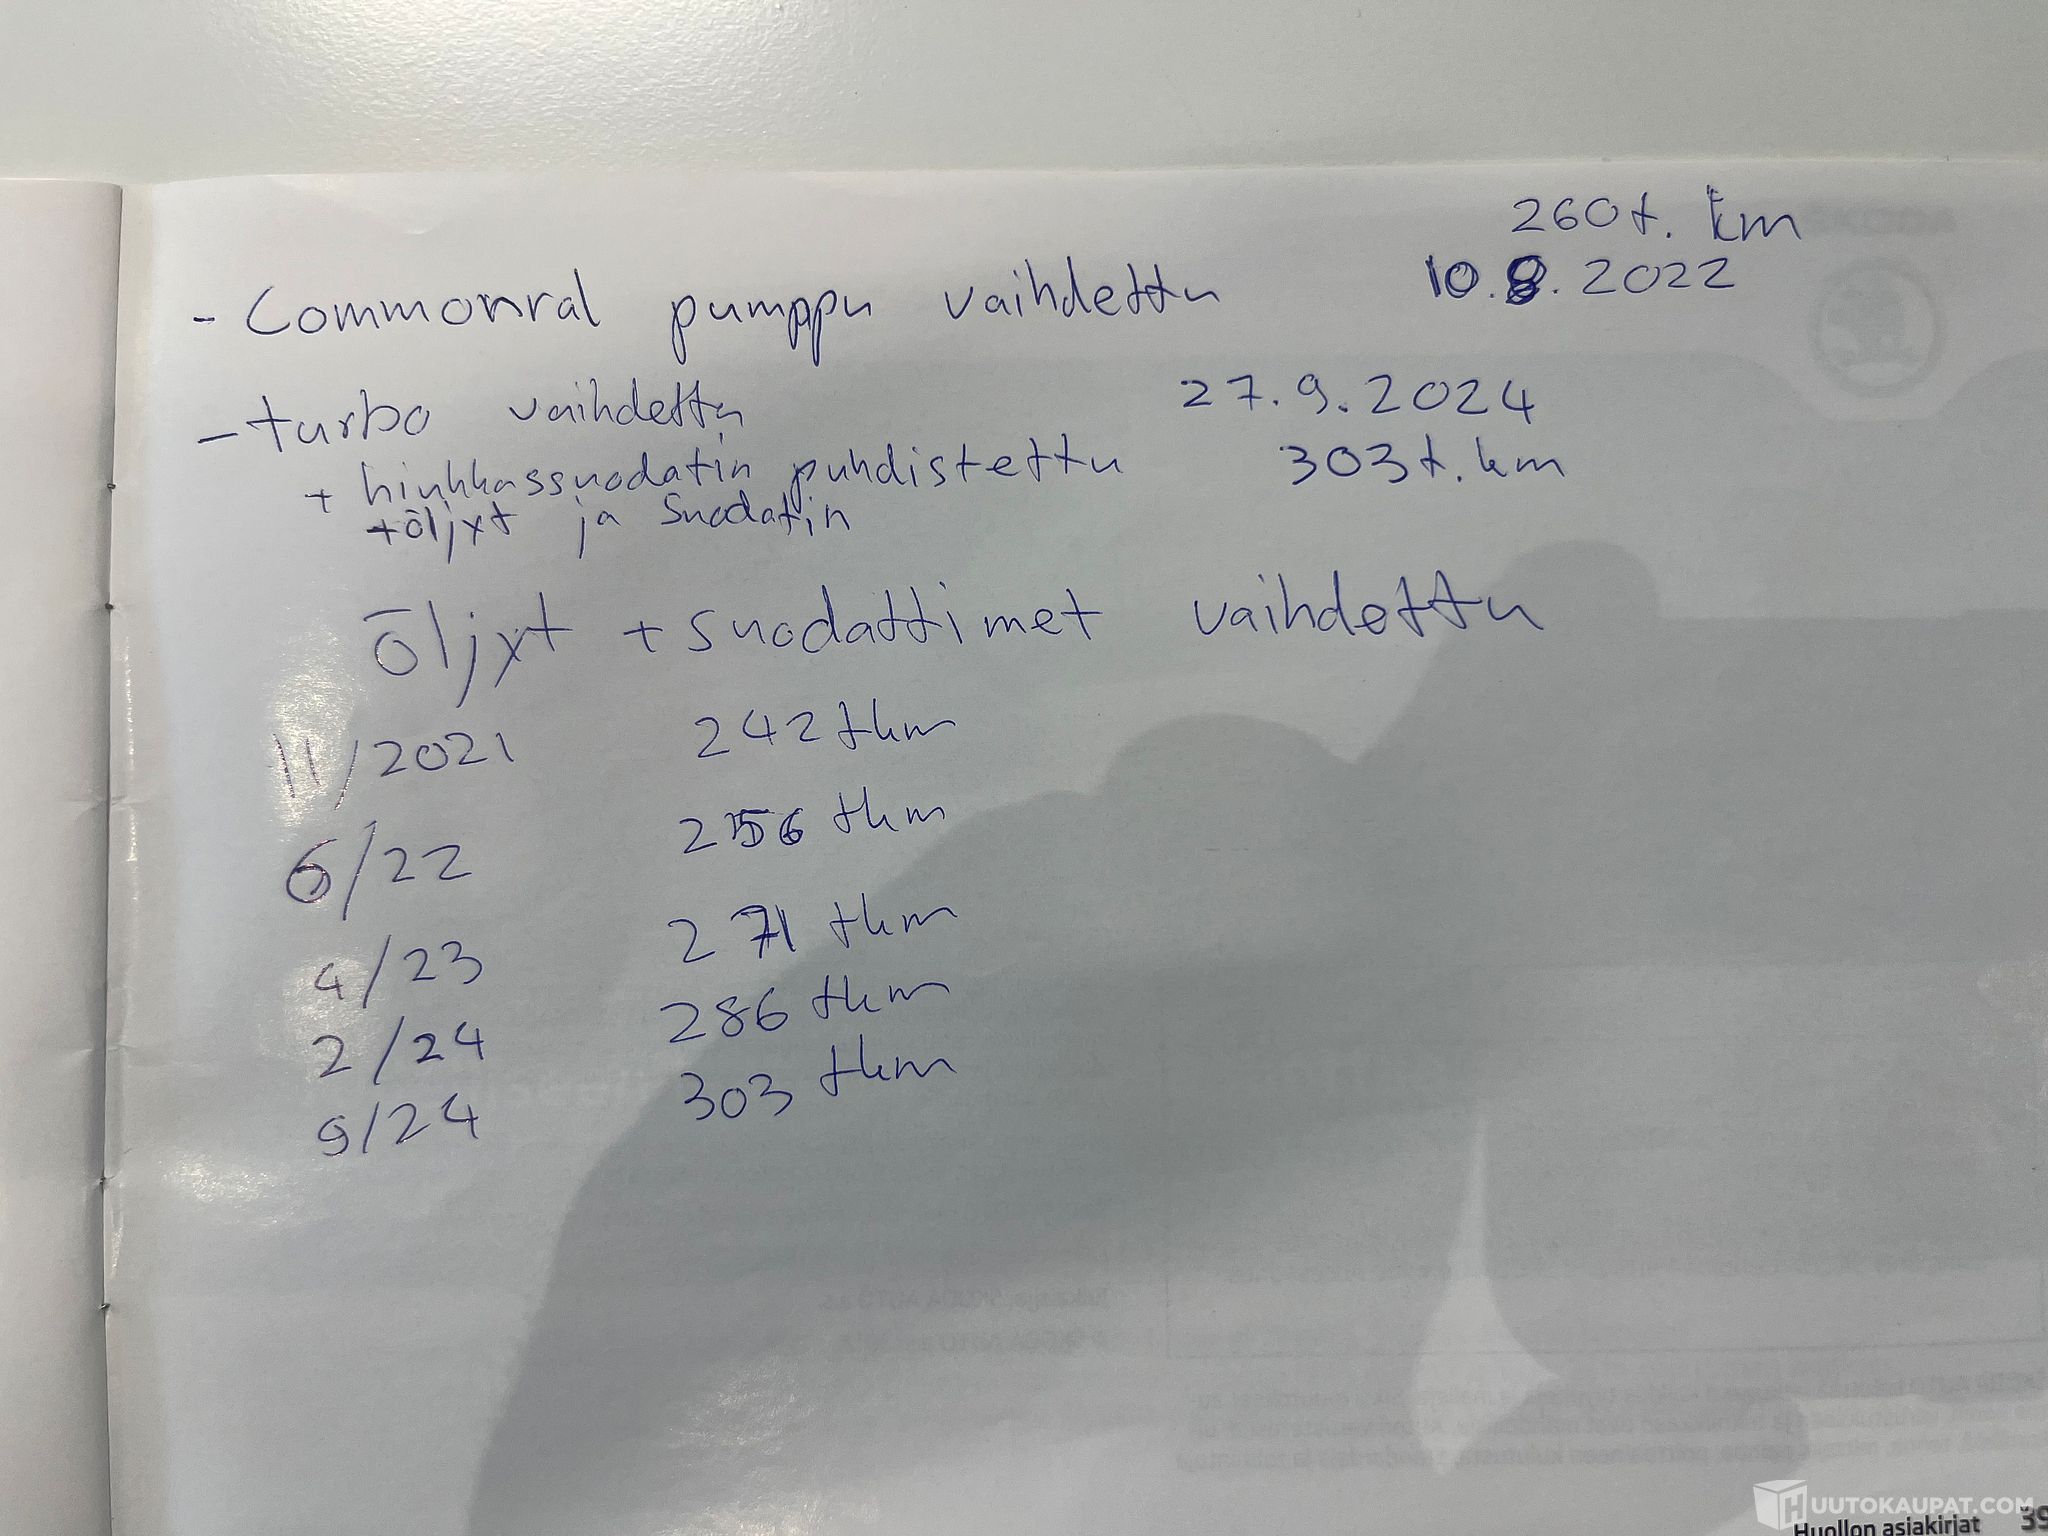 260t. km
- Commonral pumppu vaihdettu 10.8.2022
- turbo vaihdettu 27.9.2024
+ hiukkassuodatin puhdistettu 303t. km
+öljyt ja suodatin
öljyt + suodattimet vaihdettu
11/2021 242 tkm
6/22 256 tkm
4/23 271 tkm
2/24 286 tkm
9/24 303 tkm
HUUTOKAUPAT.COM
Huollon asiakirjat 39